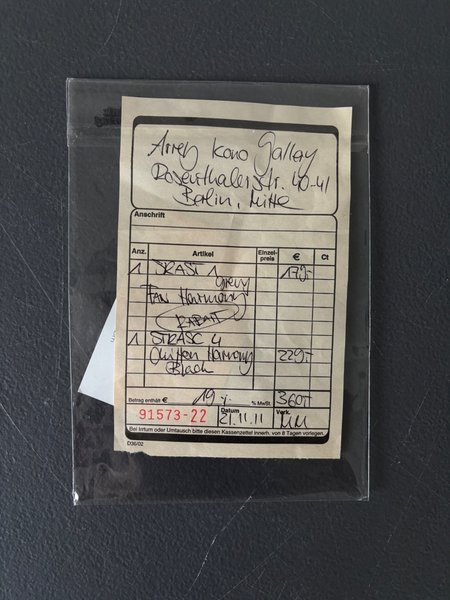 Kono Gallery
Rosenthaler str. 40-41
Berlin, Mitte
Anschrift
Anz. Artikel Einzel-preis € Ct
1 STRAST 1
Grey
Harmony
RABATT
1 STRASC 4
Harmony 229,-
Black
Betrag enthält € 19 % % MwSt. 360,-
91573-22 Datum 21.11.11 Verk. MM
Bei Irrtum oder Umtausch bitte diesen Kassenzettel innerh. von 8 Tagen vorlegen.